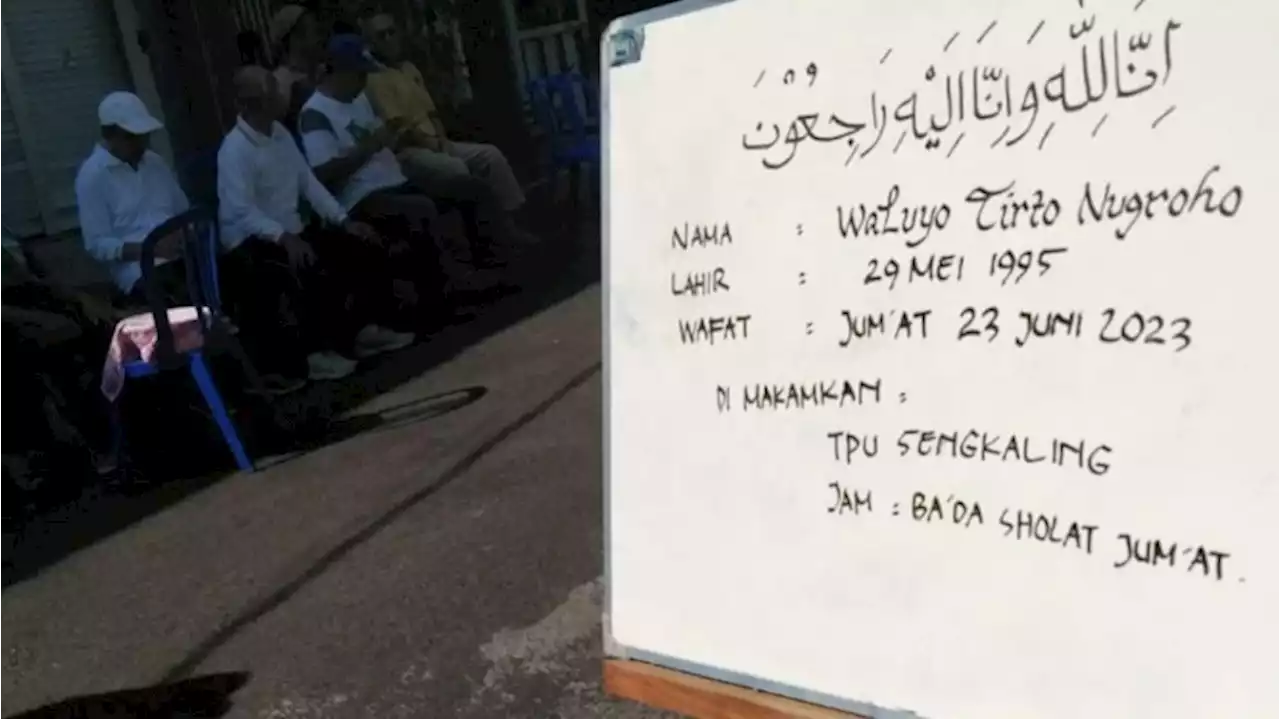 اِنَّا لِلّٰهِ وَاِنَّا اِلَيْهِ رَاجِعُوْنَ
NAMA : Waluyo Tirto Nugroho
LAHIR : 29 MEI 1995
WAFAT : JUM'AT 23 JUNI 2023
DI MAKAMKAN :
TPU SENGKALING
JAM : BA'DA SHOLAT JUM'AT.